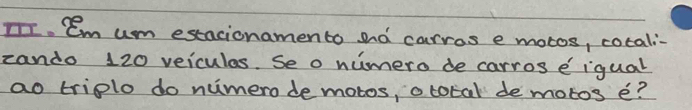 III. Em um estacionamento há carros e motos, totali-
zando 120 veículos. Se o número de carros é igual
ao triplo do número de motos, o total de motos é?